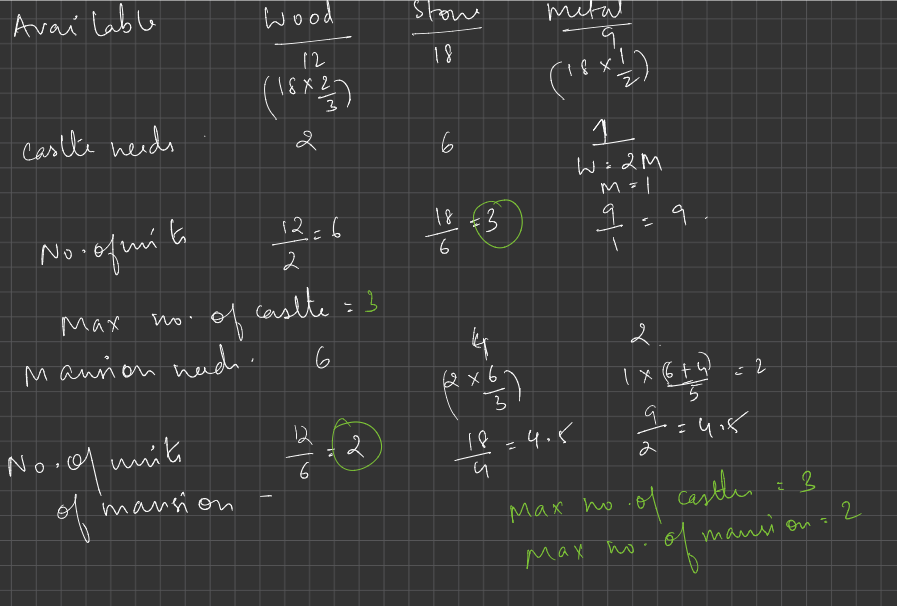 Available Wood Stone metal
12 18 9
(18 × 2/3) (18 × 1/2)
castle needs 2 6 1
W = 2M
M = 1
No. of units 12/2 = 6 18/6 = 3 9/1 = 9.
Max no. of castle = 3
Mansion needs. 6 4 2.
(2 × 6/3) 1 × (6+4)/5 = 2
No. of units 12/6 = 2 18/4 = 4.5 9/2 = 4.5
of mansion -
Max no. of castles = 3
Max no. of mansion = 2